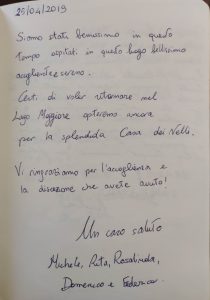 25/04/2019
Siamo stati benissimo in questo
tempo ospitati in questo luogo bellissimo
accogliente e sereno.
Certi di voler ritornare nel
Lago Maggiore opteremo ancora
per la splendida Casa dei Nelli.
Vi ringraziamo per l'accoglienza e
la discrezione che avete avuto!
Un caro saluto
Michele, Rita, Rosalinda,
Domenico e Federica.